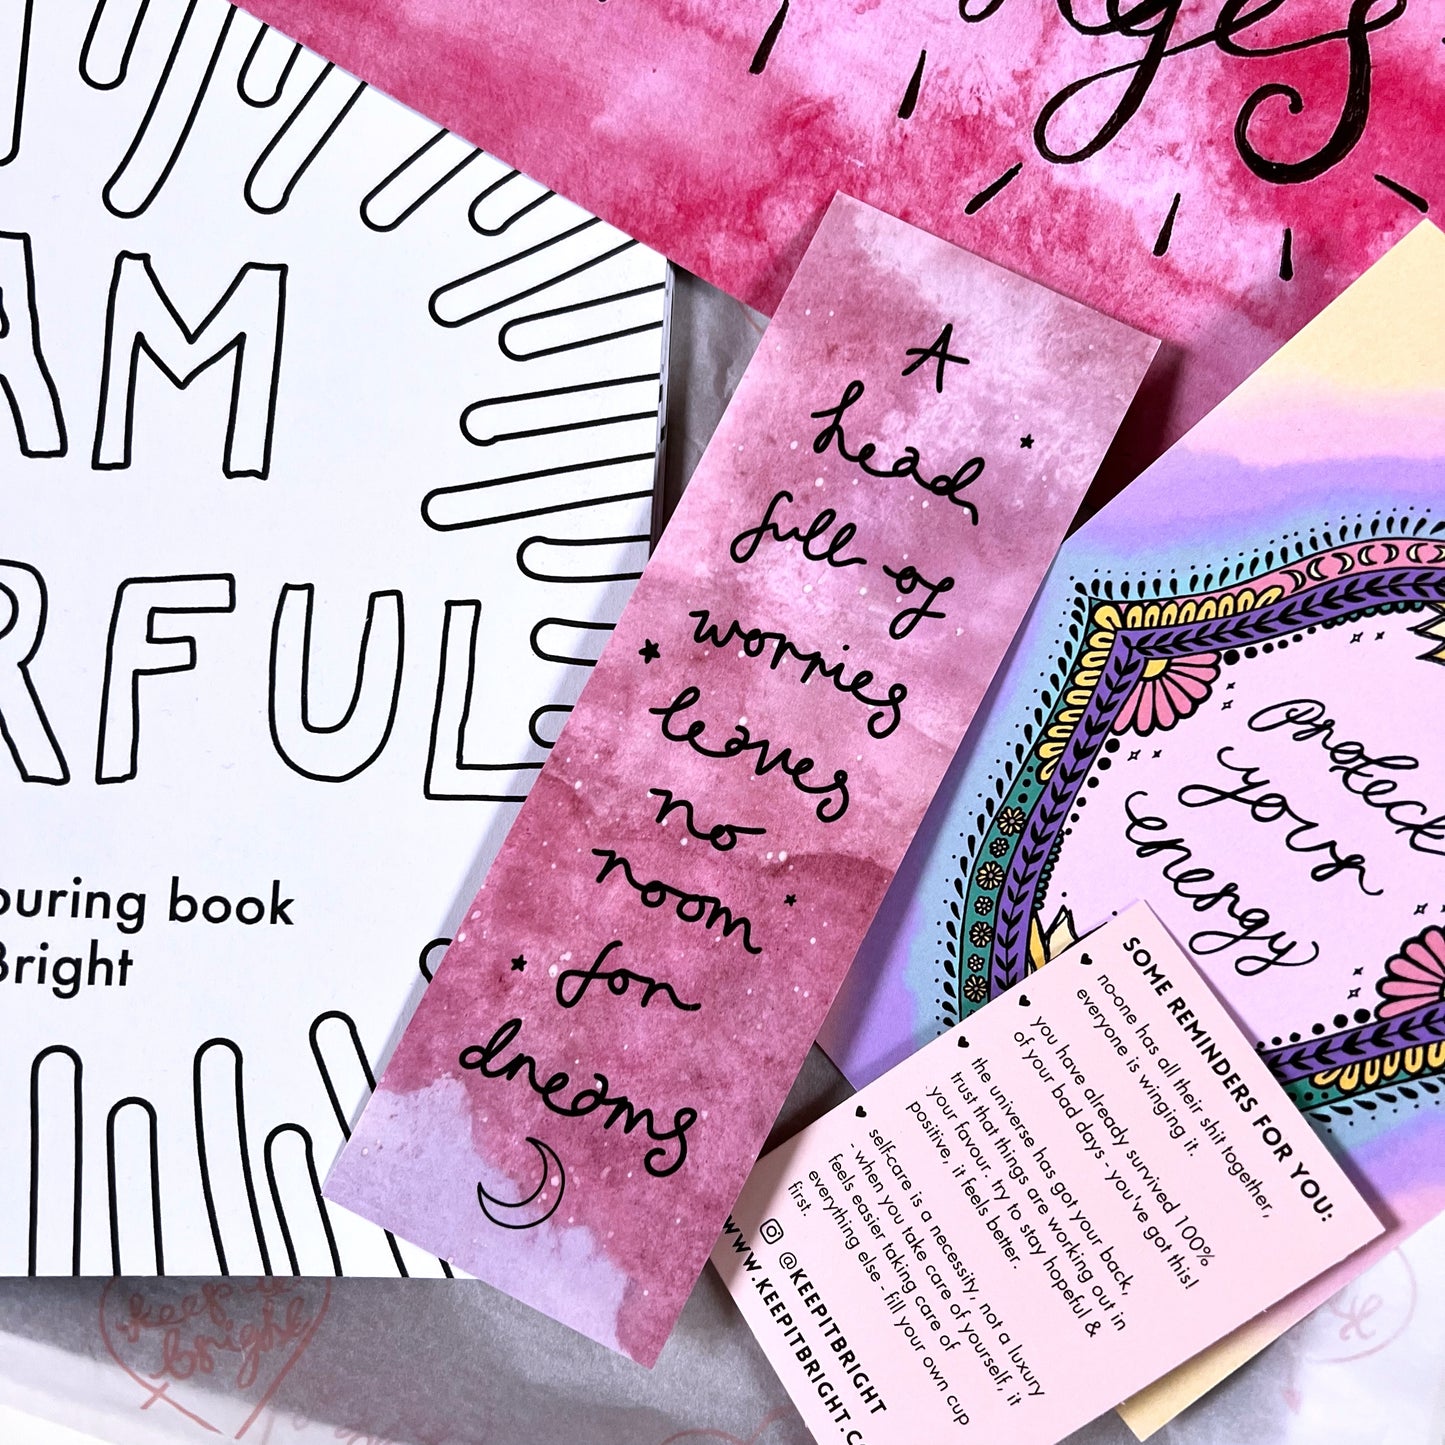 AM
RFUL
ouring book
Bright
A
head
full of
worries
leaves
no
room
for
dreams
protect
your
energy
SOME REMINDERS FOR YOU:
no-one has all their shit together,
everyone is winging it.
you have already survived 100%
of your bad days - you've got this!
the universe has got your back,
trust that things are working out in
your favour. try to stay hopeful &
positive, it feels better.
self-care is a necessity, not a luxury
- when you take care of yourself, it
feels easier taking care of
everything else - fill your own cup
first.
@KEEPITBRIGHT
WWW.KEEPITBRIGHT.C
keep it
bright